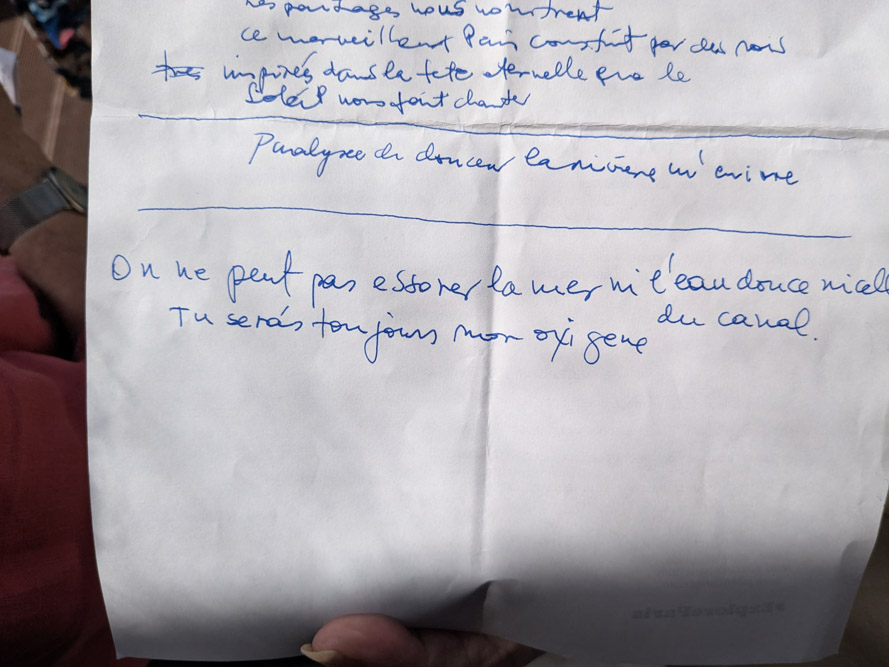 Les partages nous nourrissent
ce merveilleux Pain construit par des rois
inspirés dans la fete eternelle que le
Soleil nous fait chanter
Paralysée de douceur la rivière m'enivre
On ne peut pas essorer la mer ni l'eau douce ni cell
du canal.
Tu serás toujours mon oxigene